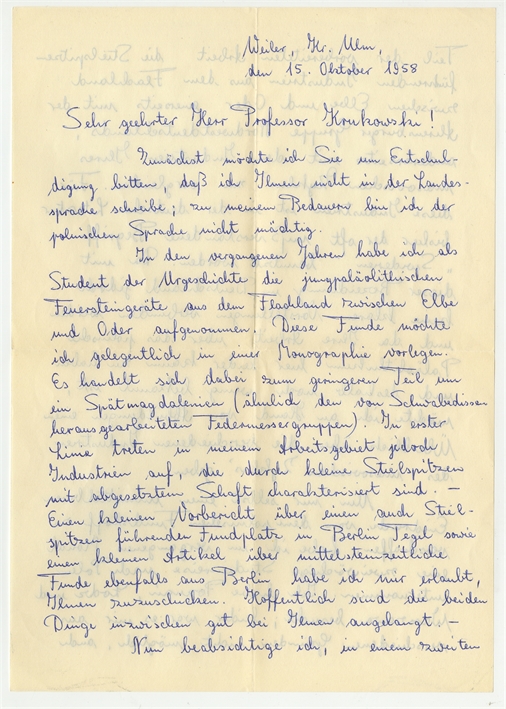 Weiler, Kr. Ulm,
den 15. Oktober 1958
Sehr geehrter Herr Professor Krukowski!
Zunächst möchte ich Sie um Entschul-
digung bitten, daß ich Ihnen nicht in der Landes-
sprache schreibe; zu meinem Bedauern bin ich der
polnischen Sprache nicht mächtig.
In den vergangenen Jahren habe ich als
Student der Urgeschichte die jungpaläolithischen
Feuersteingeräte aus dem Flachland zwischen Elbe
und Oder aufgenommen. Diese Funde möchte
ich gelegentlich in einer Monographie vorlegen.
Es handelt sich dabei zum geringeren Teil um
ein Spätmagdalenien (ähnlich den von Schwabedissen
herausgearbeiteten Federmessergruppen). In erster
Linie treten in meinem Arbeitsgebiet jedoch
Industrien auf, die durch kleine Stielspitzen
mit abgesetztem Schaft charakterisiert sind. –
Einen kleinen Vorbericht über einen auch Stiel-
spitzen führenden Fundplatz in Berlin Tegel sowie
einen kleinen Artikel über mittelsteinzeitliche
Funde ebenfalls aus Berlin habe ich mir erlaubt,
Ihnen zuzuschicken. Hoffentlich sind die beiden
Dinge inzwischen gut bei Ihnen angelangt. –
Nun beabsichtige ich, in einem zweiten